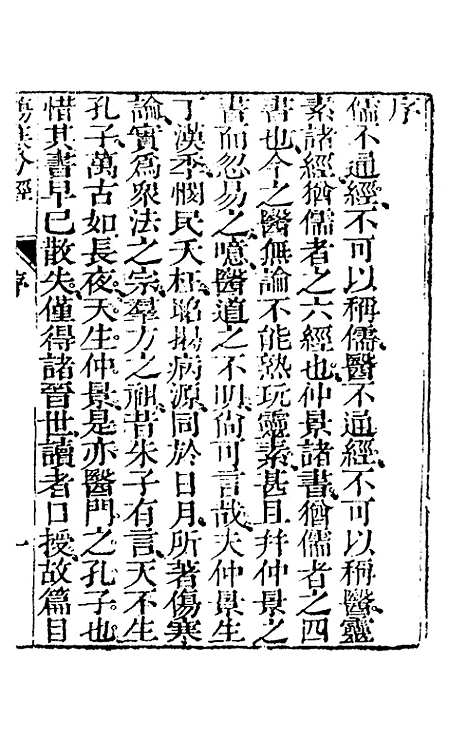 序
儒不通經不可以稱儒醫不通經不可以稱醫靈
素諸經猶儒者之六經也仲景諸書猶儒者之四
書也今之醫無論不能熟玩靈素甚且幷仲景之
書而忽易之噫醫道之不明尙可言哉夫仲景生
丁漢季憫民夭枉昭揭病源同於日月所著傷寒
論實爲衆法之宗羣方之祖昔朱子有言天不生
孔子萬古如長夜天生仲景是亦醫門之孔子也
惜其書早已散失僅得諸晉世讀者口授故篇目
傷寒分經 序 一